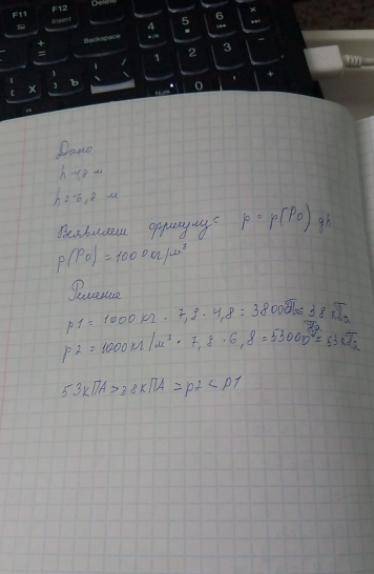 F11
F12
Insert
Delete
Backspace
4
5
6
1
2
3
0
Х
Ъ
Дано
h 4,8 м
h2=6,8 м
формулу: p = p(Ро) gh
p(Ро) = 1000 кг/м³
Решение
p1 = 1000 кг · 7,8 · 4,8 = 38000Па = 38 кПа
p2 = 1000 кг/м³ · 7,8 · 6,8 = 53000Па = 53 кПа
53кПА > 38кПА = p2 < p1